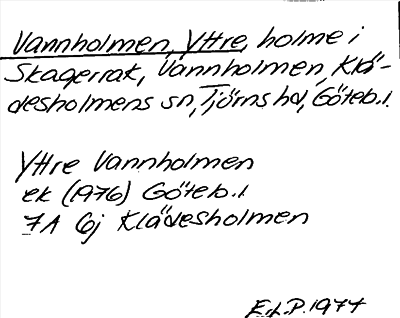 Vannholmen, Yttre, holme i
Skagerrak, Vannholmen, Klä-
desholmens sn, Tjörns hd, Göteb. l.
Yttre Vannholmen
ek (1976) Göteb. l
7A 6j Klädesholmen
E.L.P. 1977